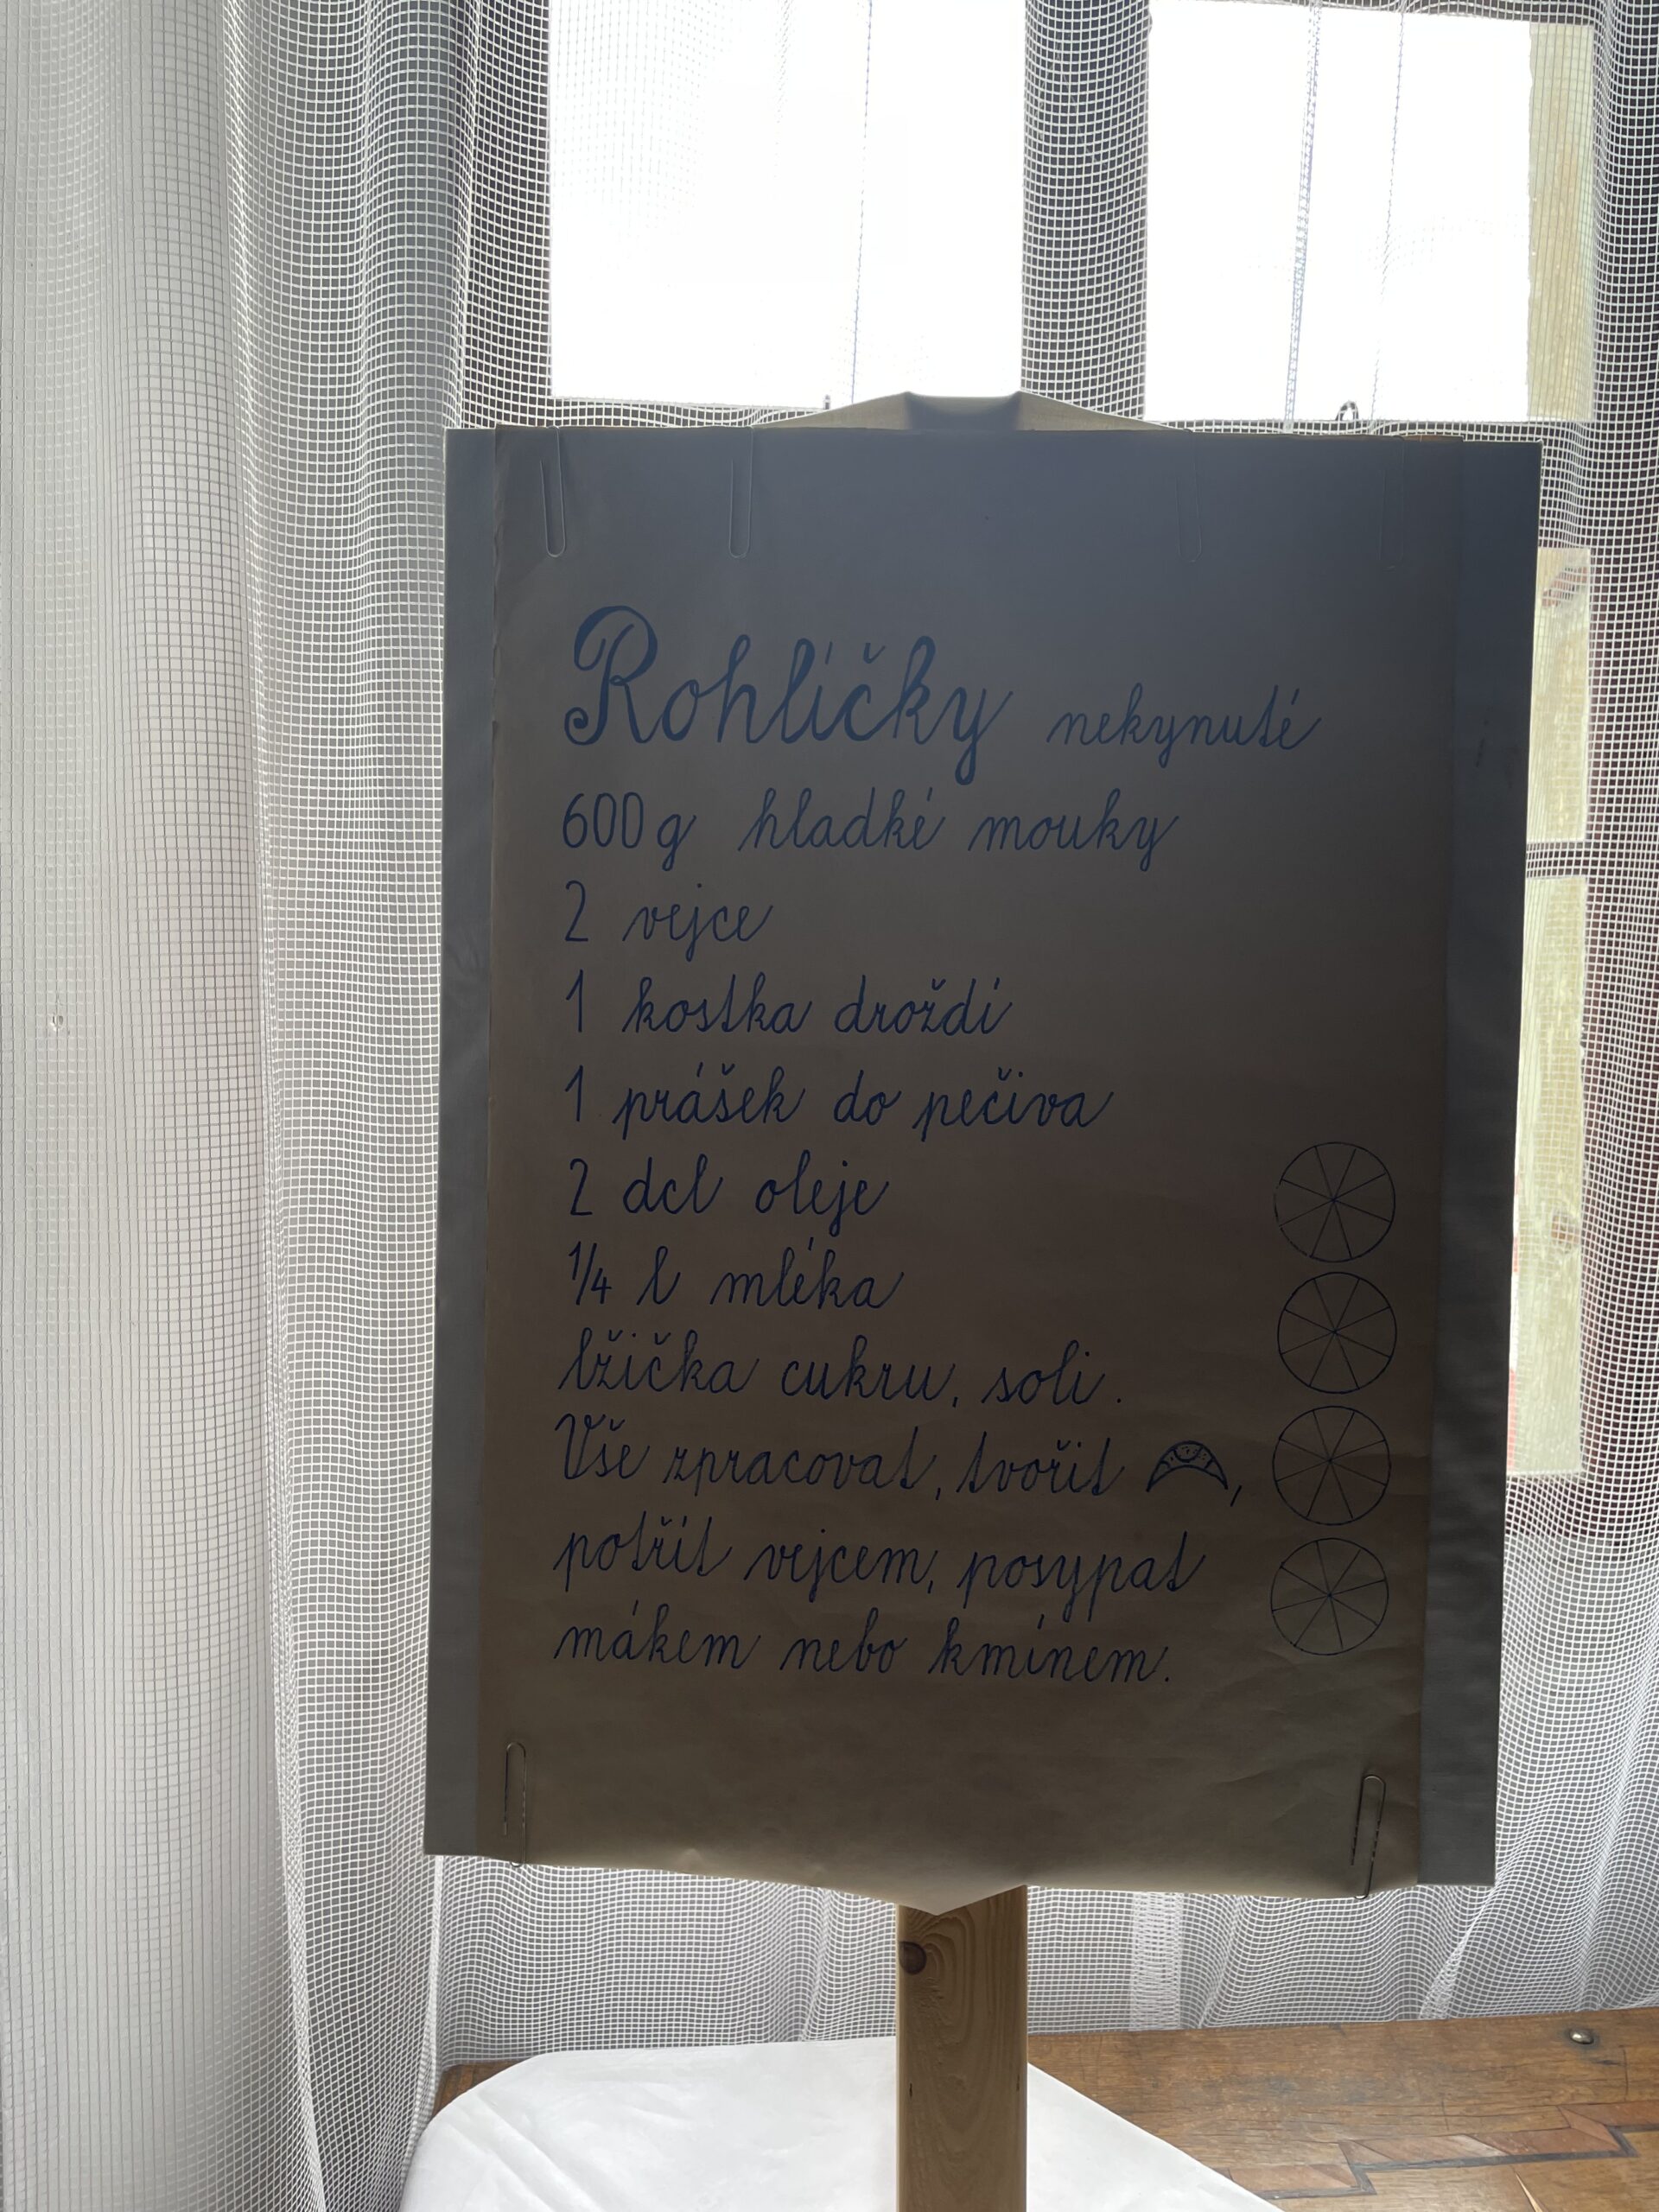 Rohlíčky nekynuté
600g hladké mouky
2 vejce
1 kostka droždí
1 prášek do pečiva
2 dcl oleje
1/4 l mléka
lžička cukru, soli.
Vše zpracovat, tvořit ,
potřít vejcem, posypat
mákem nebo kmínem.